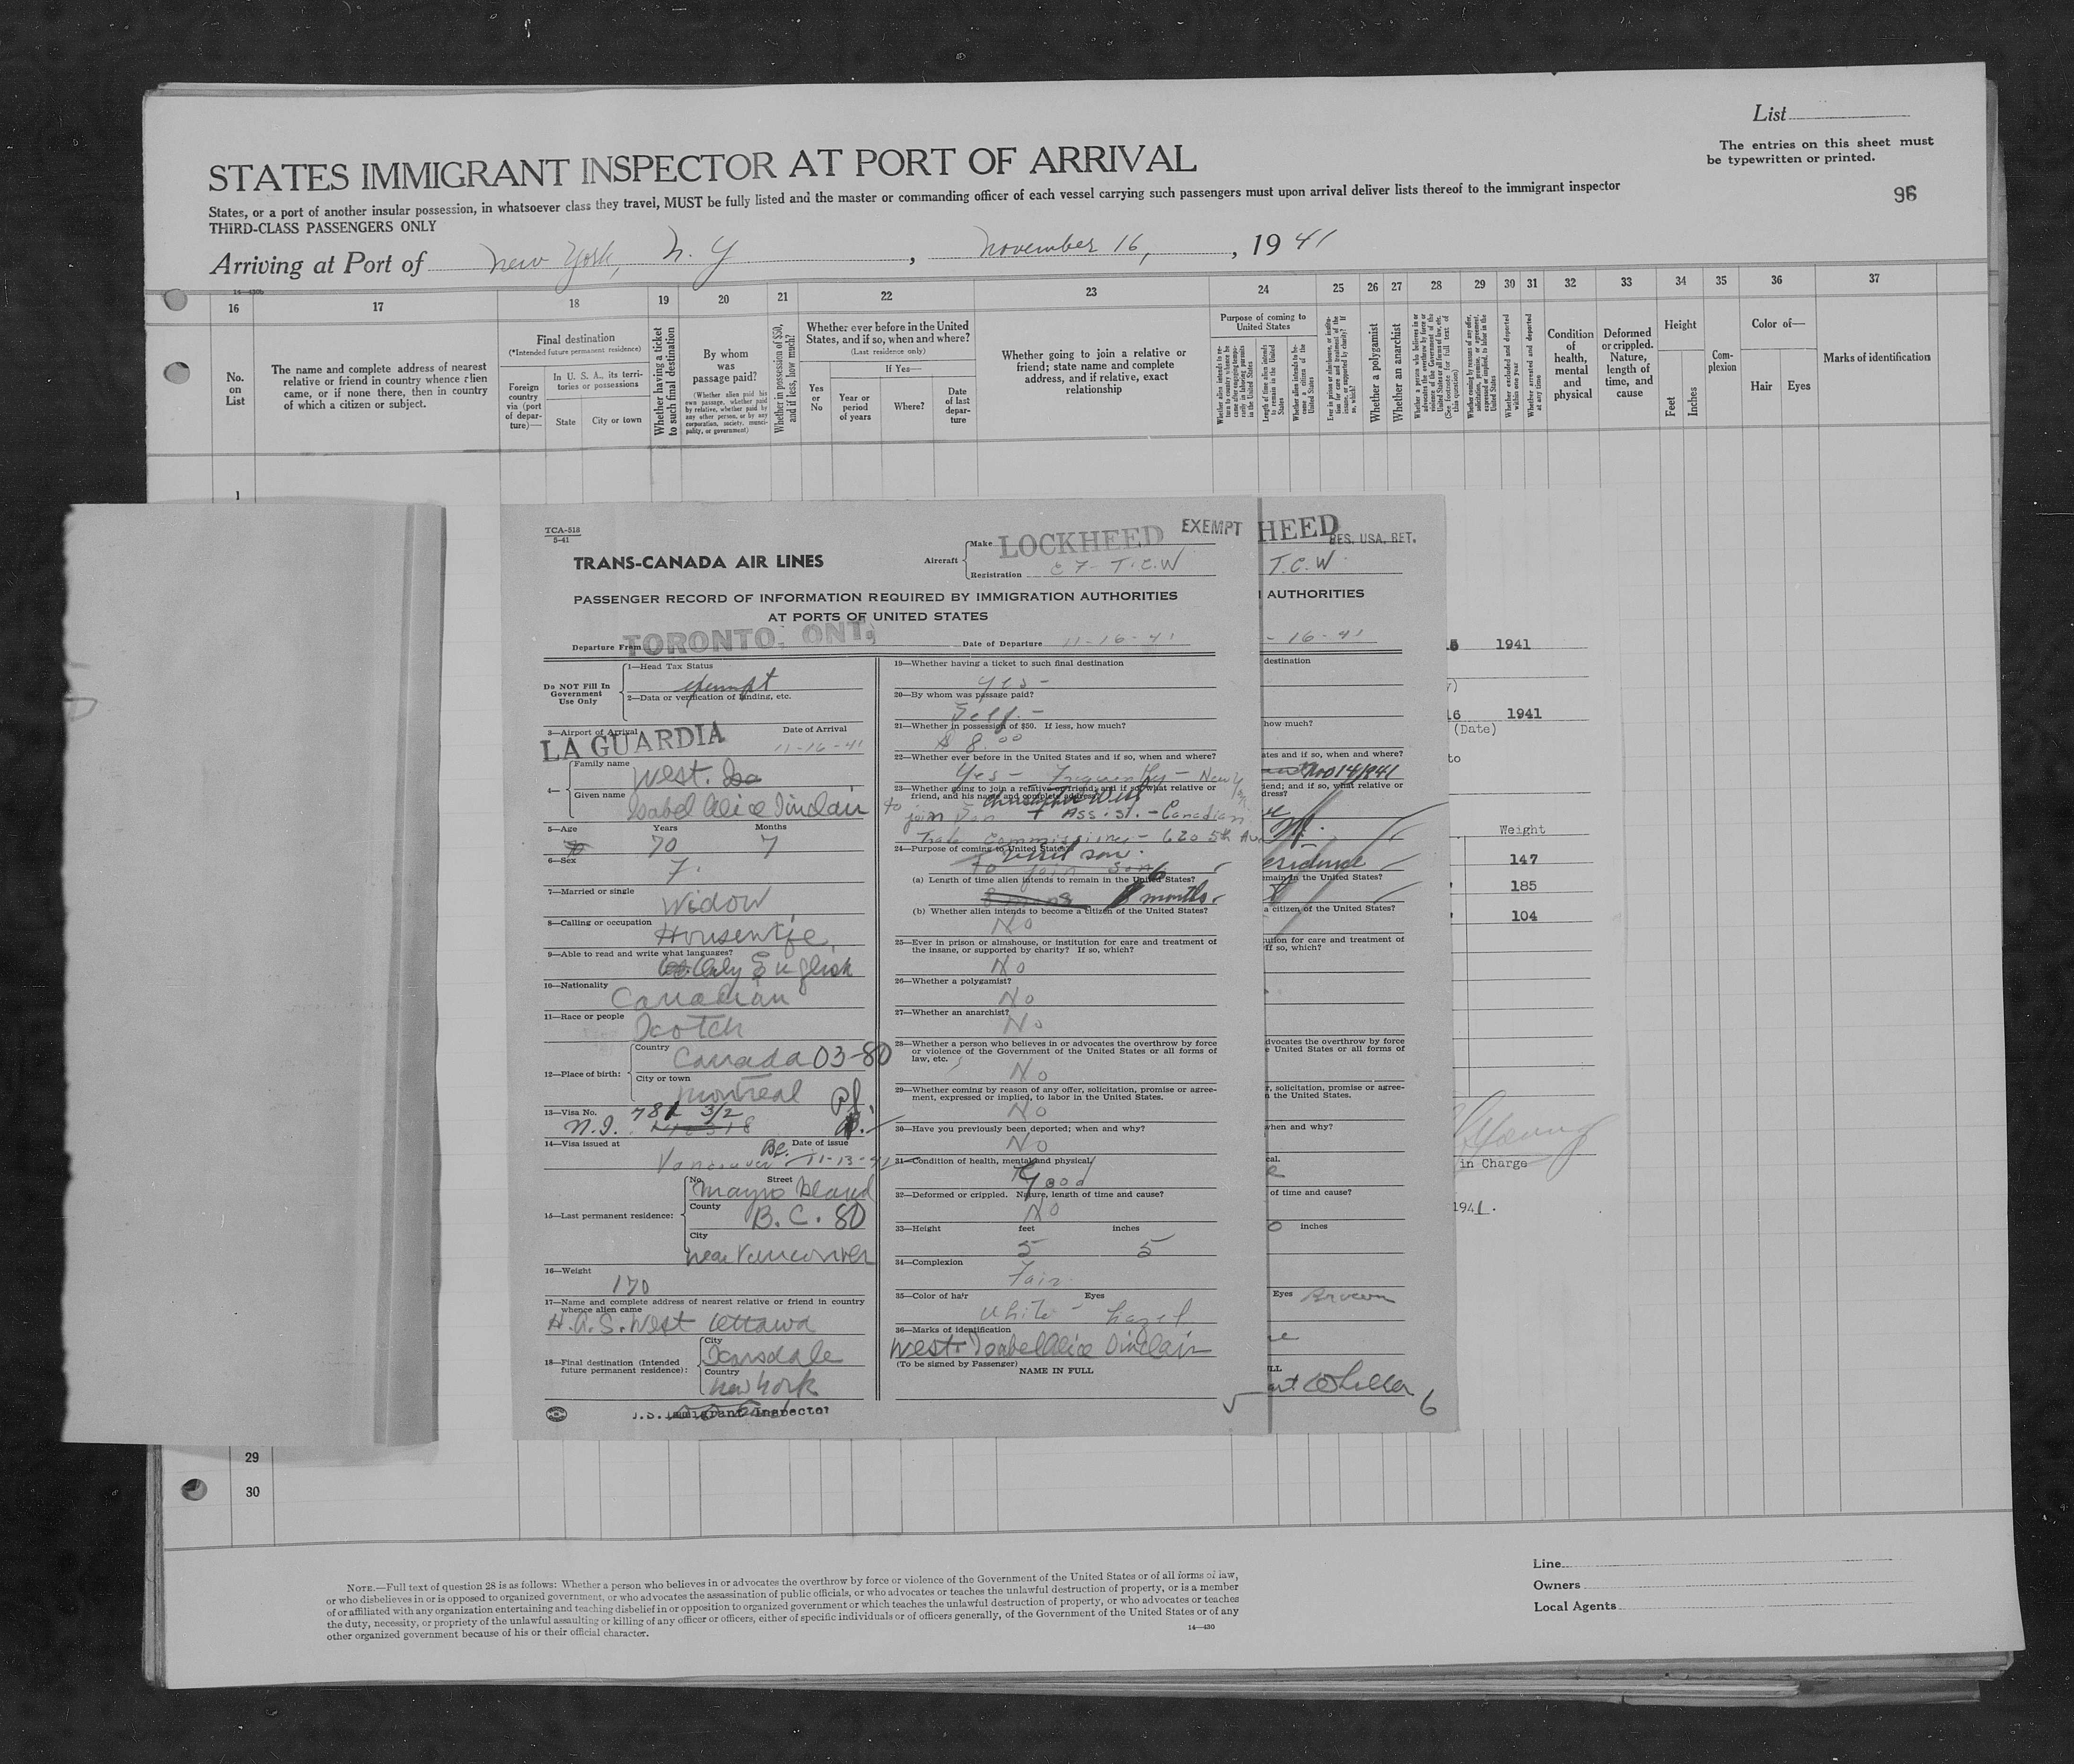 List
The entries on this sheet must
be typewritten or printed.
96
STATES IMMIGRANT INSPECTOR AT PORT OF ARRIVAL
States, or a port of another insular possession, in whatsoever class they travel, MUST be fully listed and the master or commanding officer of each vessel carrying such passengers must upon arrival deliver lists thereof to the immigrant inspector
THIRD-CLASS PASSENGERS ONLY
Arriving at Port of New York, N. Y , November 16, , 19 41
14—430b
16 17 18 19 20 21 22 23 24 25 26 27 28 29 30 31 32 33 34 35 36 37
No. on List
The name and complete address of nearest relative or friend in country whence alien came, or if none there, then in country of which a citizen or subject.
Final destination
(*Intended future permanent residence)
Foreign country via (port of departure)—
In U. S. A., its territories or possessions
State
City or town
Whether having a ticket to such final destination
By whom was passage paid?
(Whether alien paid his own passage, whether paid by relative, whether paid by any other person, or by any corporation, society, municipality, or government)
Whether in possession of $50, and if less, how much?
Whether ever before in the United States, and if so, when and where?
(Last residence only)
Yes or No
If Yes—
Year or period of years
Where?
Date of last departure
Whether going to join a relative or friend; state name and complete address, and if relative, exact relationship
Purpose of coming to United States
Length of time alien intends to remain in the United States
Whether alien intends to become a citizen of the United States
Whether a polygamist
Whether an anarchist
Whether arrested and deported at any time
Condition of health, mental and physical
Deformed or crippled. Nature, length of time, and cause
Height
Feet
Inches
Complexion
Color of—
Hair
Eyes
Marks of identification
1
TCA-518
5-41
TRANS-CANADA AIR LINES
Aircraft
Make LOCKHEED
EXEMPT
Registration CF- T.C.W
PASSENGER RECORD OF INFORMATION REQUIRED BY IMMIGRATION AUTHORITIES
AT PORTS OF UNITED STATES
Departure From TORONTO. ONT.
Date of Departure 11-16-41
Do NOT Fill In
Government
Use Only
1—Head Tax Status
exempt
2—Data or verification of landing, etc.
3—Airport of Arrival
Date of Arrival
LA GUARDIA
11-16-41
4—
Family name West.
Given name Isabel Alice Sinclair
5—Age
Years
Months
70
7
6—Sex
F.
7—Married or single
Widow
8—Calling or occupation
Housewife,
9—Able to read and write what languages?
Only English
10—Nationality
Canadian
11—Race or people
Scotch
12—Place of birth:
Country
Canada 03-80
City or town
Montreal
13—Visa No. 781 3/2
N.I.
14—Visa issued at
Date of issue
Vancouver BC. 11-13-41
15—Last permanent residence:
No. Street
Mayne Island
County
B.C. 80
City
near Vancouver
16—Weight
170
17—Name and complete address of nearest relative or friend in country
whence alien came
H.A.S. West Ottawa
18—Final destination (Intended
future permanent residence):
City
Scarsdale
Country
New York
Immigrant Inspector
19—Whether having a ticket to such final destination
Yes -
20—By whom was passage paid?
Self. -
21—Whether in possession of $50. If less, how much?
$ 8.00
22—Whether ever before in the United States and if so, when and where?
Yes - Frequently - New York
23—Whether going to join a relative or friend; and if so, what relative or
friend, and his name and complete address?
to join Son Asst. - Canadian
Trade Commissioner - 620 5th Av
24—Purpose of coming to United States?
To visit son.
To join Son
(a) Length of time alien intends to remain in the United States?
6 months
(b) Whether alien intends to become a citizen of the United States?
No
25—Ever in prison or almshouse, or institution for care and treatment of
the insane, or supported by charity? If so, which?
No
26—Whether a polygamist?
No
27—Whether an anarchist?
No
28—Whether a person who believes in or advocates the overthrow by force
or violence of the Government of the United States or all forms of
law, etc.
No
29—Whether coming by reason of any offer, solicitation, promise or agree-
ment, expressed or implied, to labor in the United States.
No
30—Have you previously been deported; when and why?
No
31—Condition of health, mental and physical
Good
32—Deformed or crippled. Nature, length of time and cause?
No
33—Height feet inches
5 5
34—Complexion
Fair
35—Color of hair Eyes
White - hazel
36—Marks of identification
West. Isabel Alice Sinclair
(To be signed by Passenger)
NAME IN FULL
HEED
RES. USA. RET.
T.C.W.
AUTHORITIES
- 16 - 41
destination
how much?
ates and if so, when and where?
Nov 14/1941
iend; and if so, what relative or
dress?
esidence
emain in the United States?
a citizen of the United States?
ution for care and treatment of
If so, which?
dvocates the overthrow by force
e United States or all forms of
r, solicitation, promise or agree-
n the United States.
when and why?
cal.
of time and cause?
inches
Eyes Brown
6
1941
16 1941
(Date)
to
Weight
147
185
104
in Charge
1941.
29
30
NOTE.—Full text of question 28 is as follows: Whether a person who believes in or advocates the overthrow by force or violence of the Government of the United States or of all forms of law,
or who disbelieves in or is opposed to organized government, or who advocates the assassination of public officials, or who advocates or teaches the unlawful destruction of property, or is a member
of or affiliated with any organization entertaining and teaching disbelief in or opposition to organized government or which teaches the unlawful destruction of property, or who advocates or teaches
the duty, necessity, or propriety of the unlawful assaulting or killing of any officer or officers, either of specific individuals or of officers generally, of the Government of the United States or of any
other organized government because of his or their official character.
14—430
Line
Owners
Local Agents